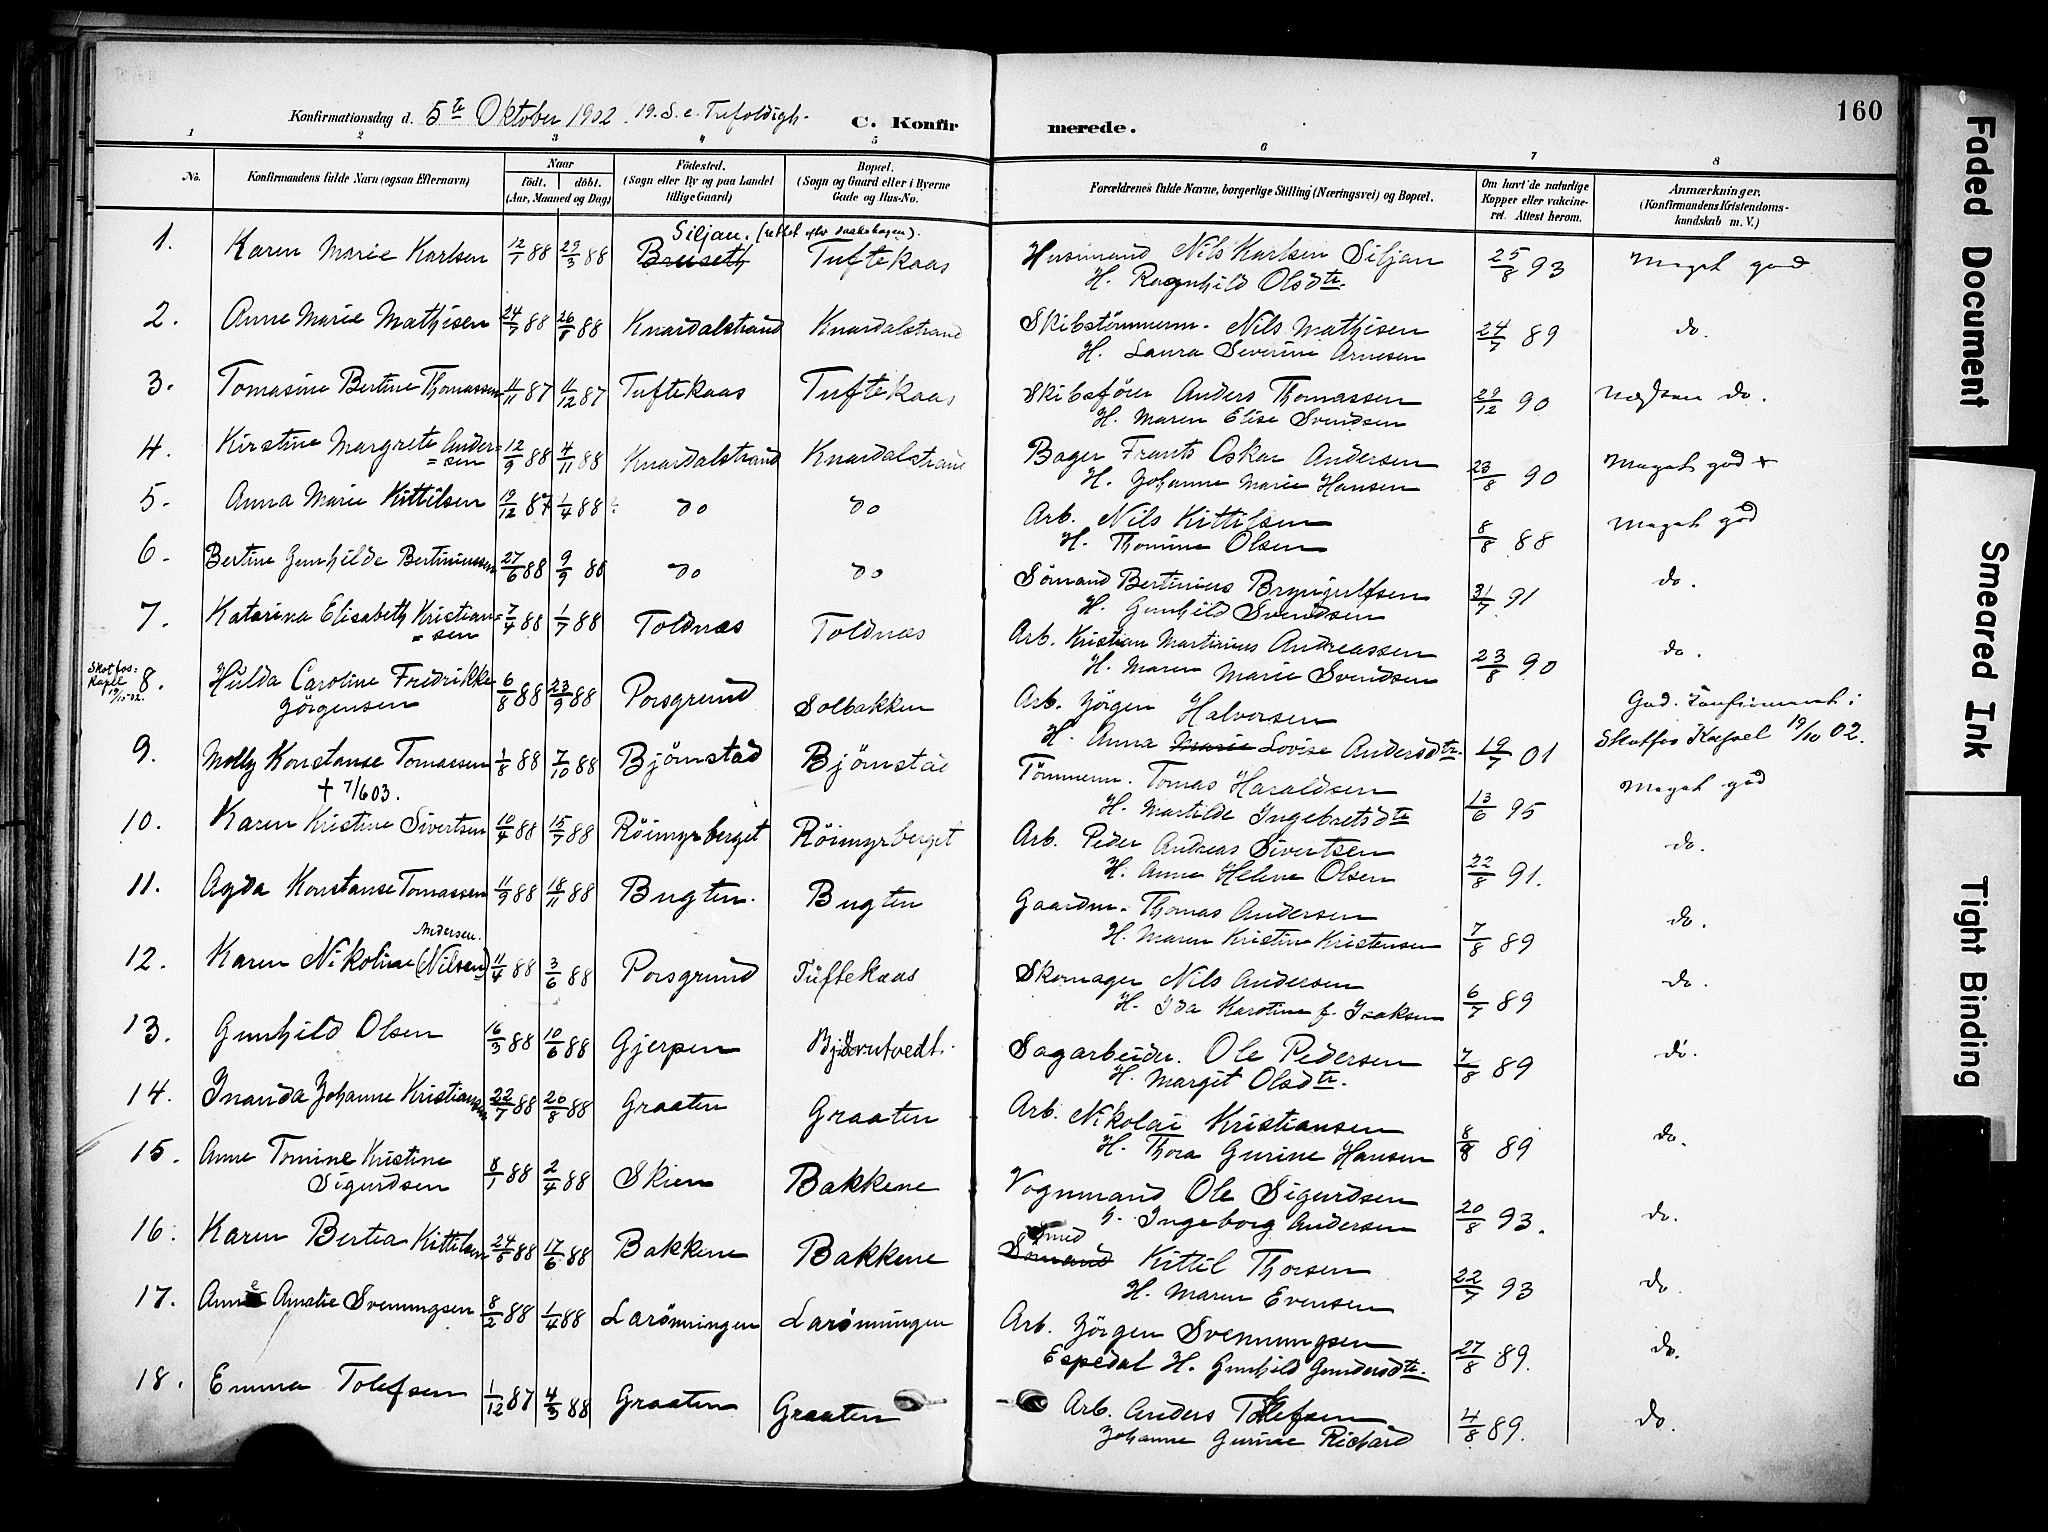 160
Konfirmationsdag d. 5te Oktober 1902. 19. S. e. Trefoldigh.
C. Konfirmerede.
1 2 3 4 5 6 7 8
No.
Konfirmandens fulde Navn (ogsaa Efternavn)
Naar
födt. döbt.
(Aar, Maaned og Dag)
Födested.
(Sogn eller By og paa Landet
tillige Gaard)
Bopæl.
(Sogn og Gaard eller i Byerne
Gade og Hus-No.
Forældrenes fulde Navne, borgerlige Stilling (Næringsvei) og Bopæl.
Om havt de naturlige
Kopper eller vakcine-
ret. Attest herom.
Anmærkninger.
(Konfirmandens Kristendoms-
kundskab m. V.)
Siljan. (rettet efter daabsbogen).
1. Karen Marie Karlsen 12/7 88 29/3 88 Bruseth Tuftekaas Husmand Nils Karlsen Siljan 25/8 93 Meget god
H. Ragnhild Olsdtr.
2. Anne Marie Mathisen 24/7 88 26/8 88 Knardalstrand Knardalstrand Skibstömmerm. Nils Mathisen 24/7 89 do.
H. Laura Severine Arnesen
3. Tomasine Bertine Thomassen 11/11 87 11/12 87 Tuftekaas Tuftekaas Skibsförer Anders Thomassen 29/12 90 Næsten do.
H. Maren Elise Svendsen
4. Kirstine Margrete Ander=
=sen 12/9 88 4/11 88 Knardalstrand Knardalstrand Bager Frants Oskar Andersen 23/8 90 Meget god +
H. Johanne Marie Hansen
5. Anna Marie Kittilsen 19/12 87 1/4 88 do do Arb. Nils Kittilsen 8/8 88 Meget god
H. Thomine Olsen
6. Bertine Gunhilde Bertiniussen 27/6 88 9/9 88 do do Sömand Bertinius Brynjulfsen 31/7 91 do.
H. Gunhild Svendsen
7. Katarina Elisabeth Kristian=
=sen 7/4 88 1/7 88 Toldnæs Toldnæs Arb. Kristian Martinius Andreassen 23/8 90 do.
H. Maren Marie Svendsen
Skotfos:
Kapel
19/10-02.
8. Hulda Caroline Fredrikke
Jörgensen 6/8 88 23/9 88 Porsgrund Solbakken Arb. Jörgen Halvorsen God. Konfirmeret i
H. Anna Marie Lovise Andersdtr. 19/7 01 Skotfos Kapel 19/10 02.
9. Molly Konstanse Tomassen 1/8 88 7/10 88 Bjørnstad Bjørnstad Tömmerm. Tomas Haraldsen 13/6 95 Meget god
+ 7/6 03.
H. Martilde Ingebretsdtr
10. Karen Kristine Sivertsen 10/4 88 15/7 88 Röimyrberget Röimyrberget Arb. Peder Andreas Sivertsen 22/8 91. do.
H. Anne Helene Olsen
11. Agda Konstanse Tomassen 11/9 88 18/11 88 Bugten. Bugten Gaardm. Thomas Andersen 7/8 89 do.
H. Maren Kristine Kristensen
Andersen.
12. Karen Nikoline (Nilsen) 11/4 88 3/6 88 Porsgrund Tuftekaas Skomager Nils Andersen 6/7 89 do.
H. Ida Karoline f. Isaksen
13. Gunhild Olsen 16/3 88 10/6 88 Gjerpen Bjørntvedt. Sagarbeider. Ole Pedersen 7/8 89 do.
H. Margit Olsdtr.
14. Inanda Johanne Kristiansen 22/7 88 20/8 88 Graaten Graaten Arb. Nikolai Kristiansen 8/8 89 do.
H. Thora Gurine Hansen
15. Anne Tomine Kristine
Sigurdsen 8/1 88 2/4 88 Skien Bakkene Vognmand Ole Sigurdsen 20/8 93. do.
H. Ingeborg Andersen
Smed
16. Karen Bertea Kittilsen 24/3 88 17/6 88 Bakkene Bakkene Sömand Kittil Thorsen 22/7 93 do.
H. Maren Evensen
17. Anne Amalie Svenungsen 8/2 88 1/4 88 Larønningen Larønningen Arb. Jörgen Svenungsen 27/8 89. do.
Espedal H. Gunhild Gundersdtr.
18. Emma Tolefsen 1/12 87 4/3 88 Graaten Graaten Arb. Anders Tolefsen 4/8 89. do.
Johanne Gurine Richard
Faded Document
Smeared Ink
Tight Binding